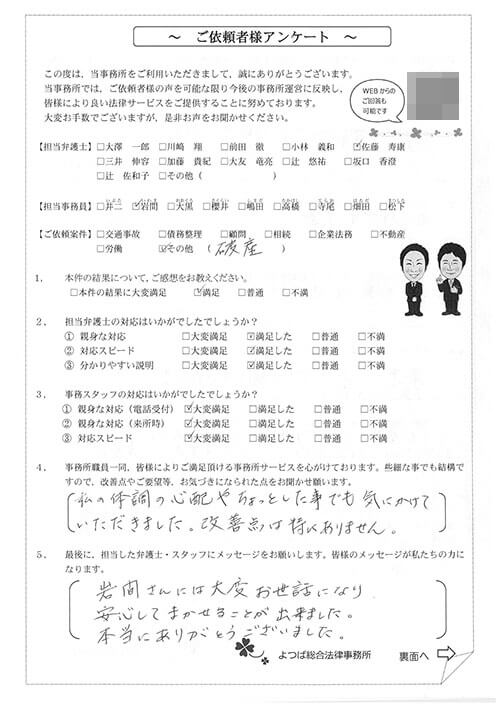 ～ ご依頼者様アンケート ～
この度は、当事務所をご利用いただきまして、誠にありがとうございます。
当事務所では、ご依頼者様の声を可能な限り今後の事務所運営に反映し、
皆様により良い法律サービスをご提供することに努めております。
大変お手数でございますが、是非お声をお聞かせください。
WEBからの
ご回答も
可能です
【担当弁護士】□大澤 一郎 □川崎 翔 □前田 徹 □小林 義和 ☑佐藤 寿康
□三井 伸容 □加藤 貴紀 □大友 竜亮 □辻 悠祐 □坂口 香澄
□辻 佐和子 □その他（ ）
【担当事務員】□井二 ☑岩間 □大黒 □櫻井 □嶋田 □高橋 □寺尾 □畑田 □松下
【ご依頼案件】□交通事故 □債務整理 □顧問 □相続 □企業法務 □不動産
□労働 ☑その他（ 破産 ）
1． 本件の結果について、ご感想をお教えください。
□本件の結果に大変満足 ☑満足 □普通 □不満
2． 担当弁護士の対応はいかがでしたでしょうか？
① 親身な対応 □大変満足 ☑満足した □普通 □不満
② 対応スピード □大変満足 ☑満足した □普通 □不満
③ 分かりやすい説明 □大変満足 ☑満足した □普通 □不満
3． 事務スタッフの対応はいかがでしたでしょうか？
① 親身な対応（電話受付） ☑大変満足 □満足した □普通 □不満
② 親身な対応（来所時） ☑大変満足 □満足した □普通 □不満
③ 対応スピード ☑大変満足 □満足した □普通 □不満
4． 事務所職員一同、皆様によりご満足頂ける事務所サービスを心がけております。些細な事でも結構で
すので、改善点やご要望等、お気づきになられた点をお聞かせ願います。
私の体調の心配やちょっとした事でも気にかけて
いただきました。改善点は特にありません。
5． 最後に、担当した弁護士・スタッフにメッセージをお願いします。皆様のメッセージが私たちの力に
なります。
岩間さんには大変お世話になり
安心してまかせることが出来ました。
本当にありがとうございました。
よつば総合法律事務所
裏面へ